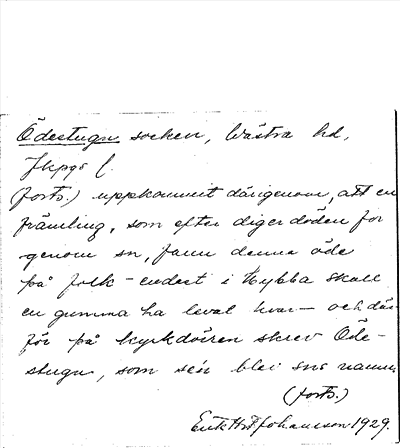 Ödestugu socken, Västra hd,
Jkpgs l.
(forts.) uppkommit därigenom, att en
främling, som efter digerdöden for
genom sn, fann denna öde
på folk - endast i Hybba skall
en gumma ha levat kvar - och där-
för på kyrkdörren skrev Öde-
stugu, som sen blev sns namn
(forts.)
Johansson 1929.